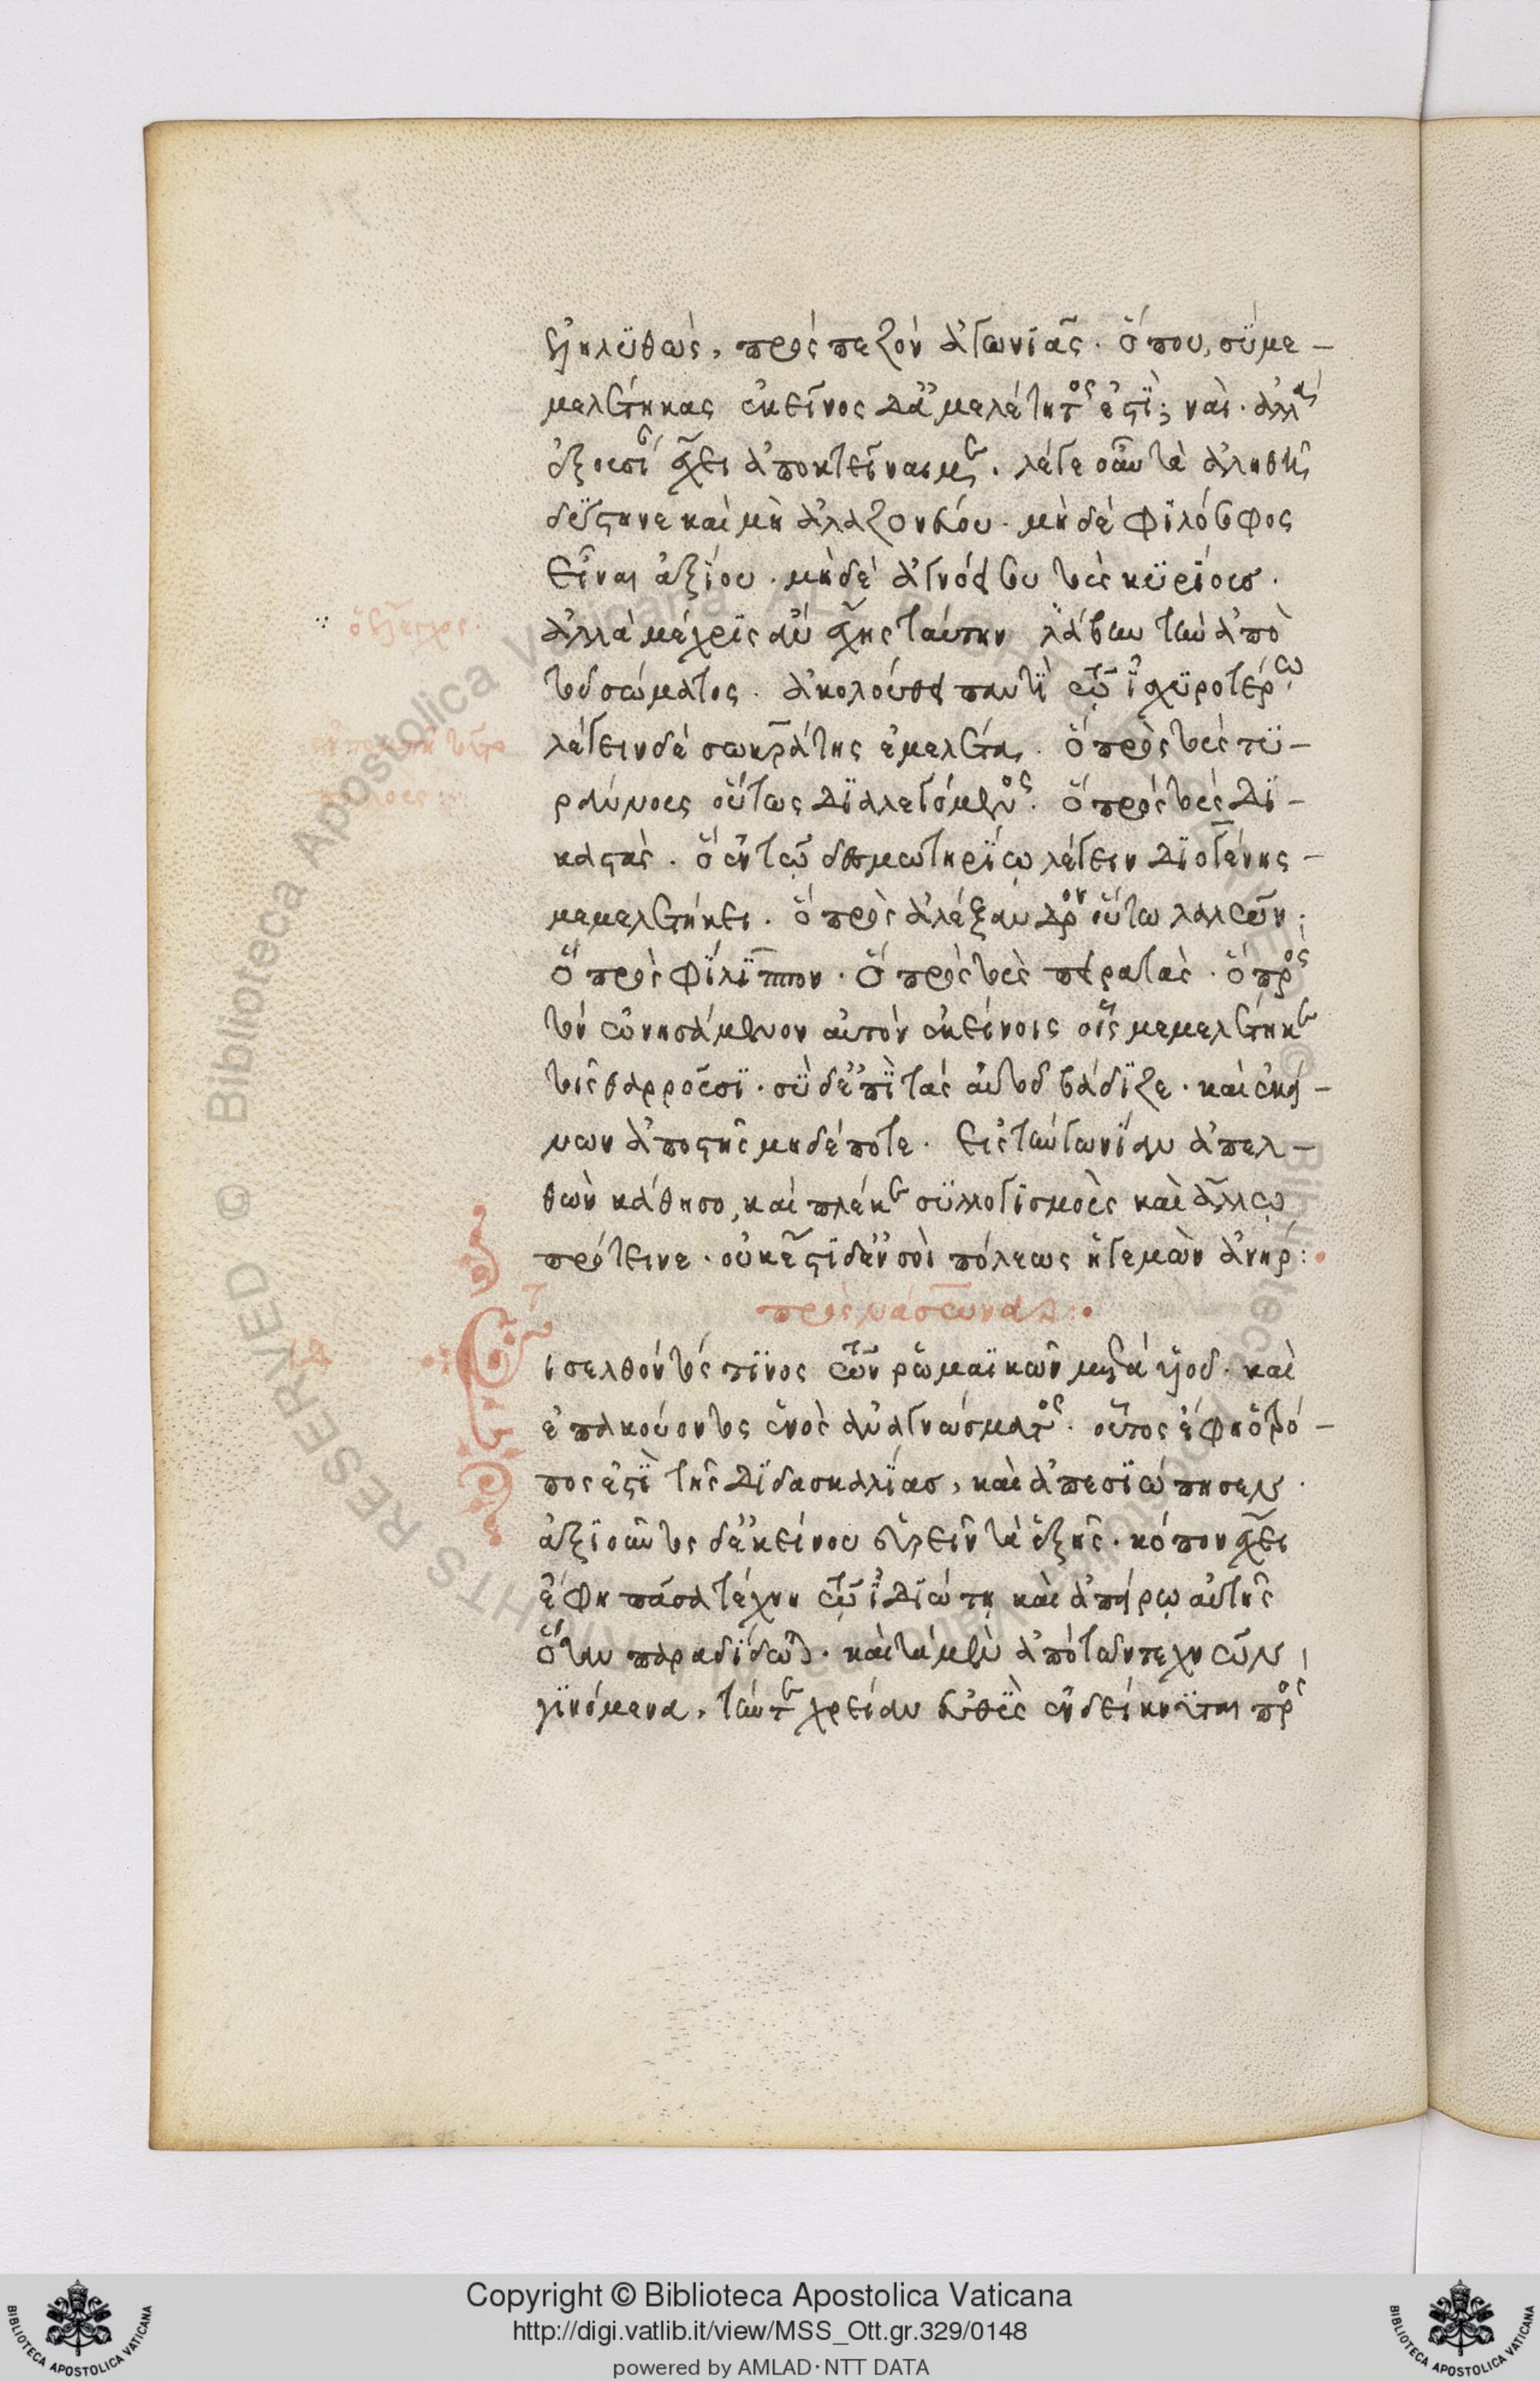 ἐληλυθὼς, πρὸς πεζὸν ἀγωνιᾷς. ὅπου, σὺ με-
μελέτηκας ἐκεῖνος δ' ἀμελέτητός ἐστι; ναὶ. ἀλλ'
ἐξουσίαν ἔχει ἀποκτεῖναί με. λέγε οὖν τὰ ἀληθῆ
δύστηνε καὶ μὴ ἀλαζονεύου. μηδὲ φιλόσοφος
εἶναι ἀξίου. μηδὲ ἀγνόει σου τοὺς κυρίους.
ἀλλὰ μέχρις ἂν ἔχῃς ταύτην λάβην τὴν ἀπὸ
τοῦ σώματος. ἀκολούθει παντὶ τῷ ἰσχυροτέρῳ
λέγειν δὲ σωκράτης ἐμελέτα. ὁ πρὸς τοὺς τυ-
ράννους οὕτως διαλεγόμενος. ὁ πρὸς τοὺς δι-
καστὰς. ὁ ἐν τῷ δεσμωτηρίῳ λέγειν διογένης
μεμελετήκει. ὁ πρὸς ἀλέξανδρον οὕτω λαλῶν.
ὁ πρὸς φίλιππον. ὁ πρὸς τοὺς πειρατὰς. ὁ πρὸς
τὸν ὠνησάμενον αὐτὸν ἐκείνοις οἷς μεμελέτηκεν
τοῖς θαρροῦσι. σὺ δ' ἐπὶ τὰς αὐτοῦ βάδιζε. καὶ ἐκεί-
νων ἀποστῇς μηδέποτε. εἰς τὴν γωνίαν ἀπελ-
θὼν κάθησο, καὶ πλέκε συλλογισμοὺς καὶ ἄλλῳ
πρότεινε. οὐκ ἔστι δ' ἐν σοὶ πόλεως ἡγεμὼν ἀνήρ:
πρὸς νάσωνα:
Εἰσελθόντός τινος τῶν ῥωμαϊκῶν μετὰ υἱοῦ. καὶ
ἐπακούοντος ἑνὸς ἀναγνώσματος. οὗτος ἔφη ὁ τρό-
πος ἐστὶ τῆς διδασκαλίας, καὶ ἀπεσιώπησεν.
ἀξιοῦντος δ' ἐκείνου εὑρεῖν τὰ ἑξῆς. κόπον ἔχει
ἔφη πᾶσα τέχνη τῷ ἰδιώτῃ καὶ ἀπείρῳ αὐτῆς
ὅταν παραδίδωται. καὶ τὰ μὲν ἀπὸ τῶν τεχνῶν
γινόμενα, τήν τε χρείαν εὐθὺς ἐνδείκνυται πρὸς
Copyright © Biblioteca Apostolica Vaticana
http://digi.vatlib.it/view/MSS_Ott.gr.329/0148
powered by AMLAD·NTT DATA